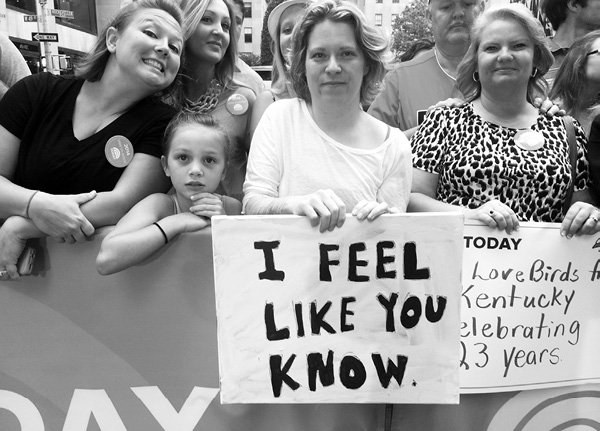 I FEEL
LIKE YOU
KNOW.
TODAY
LoveBirds
Kentucky
elebrating
23 years
DAY